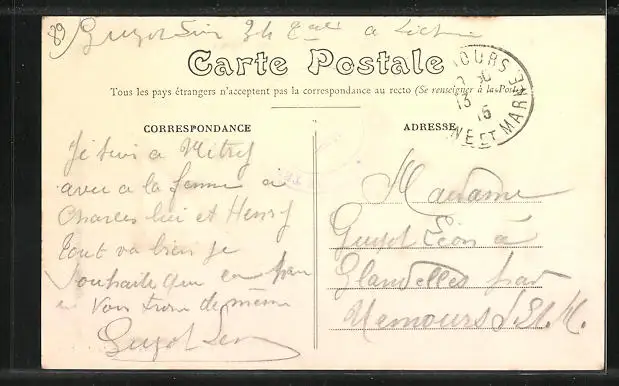 89
Guyot Léon 34
Carte Postale
Tous les pays étrangers n'acceptent pas la correspondance au recto (Se renseigner à la Poste)
CORRESPONDANCE
ADRESSE
OURS
13
15
NE ET MARNE
Je suis a Mitry
avec a la femme a
Charles lui et Henry
tout va bien je
souhaite que
Vous de même
Guyot Leon
Madame
Guyot Léon à
Glandelles par
Nemours S. Et. M.